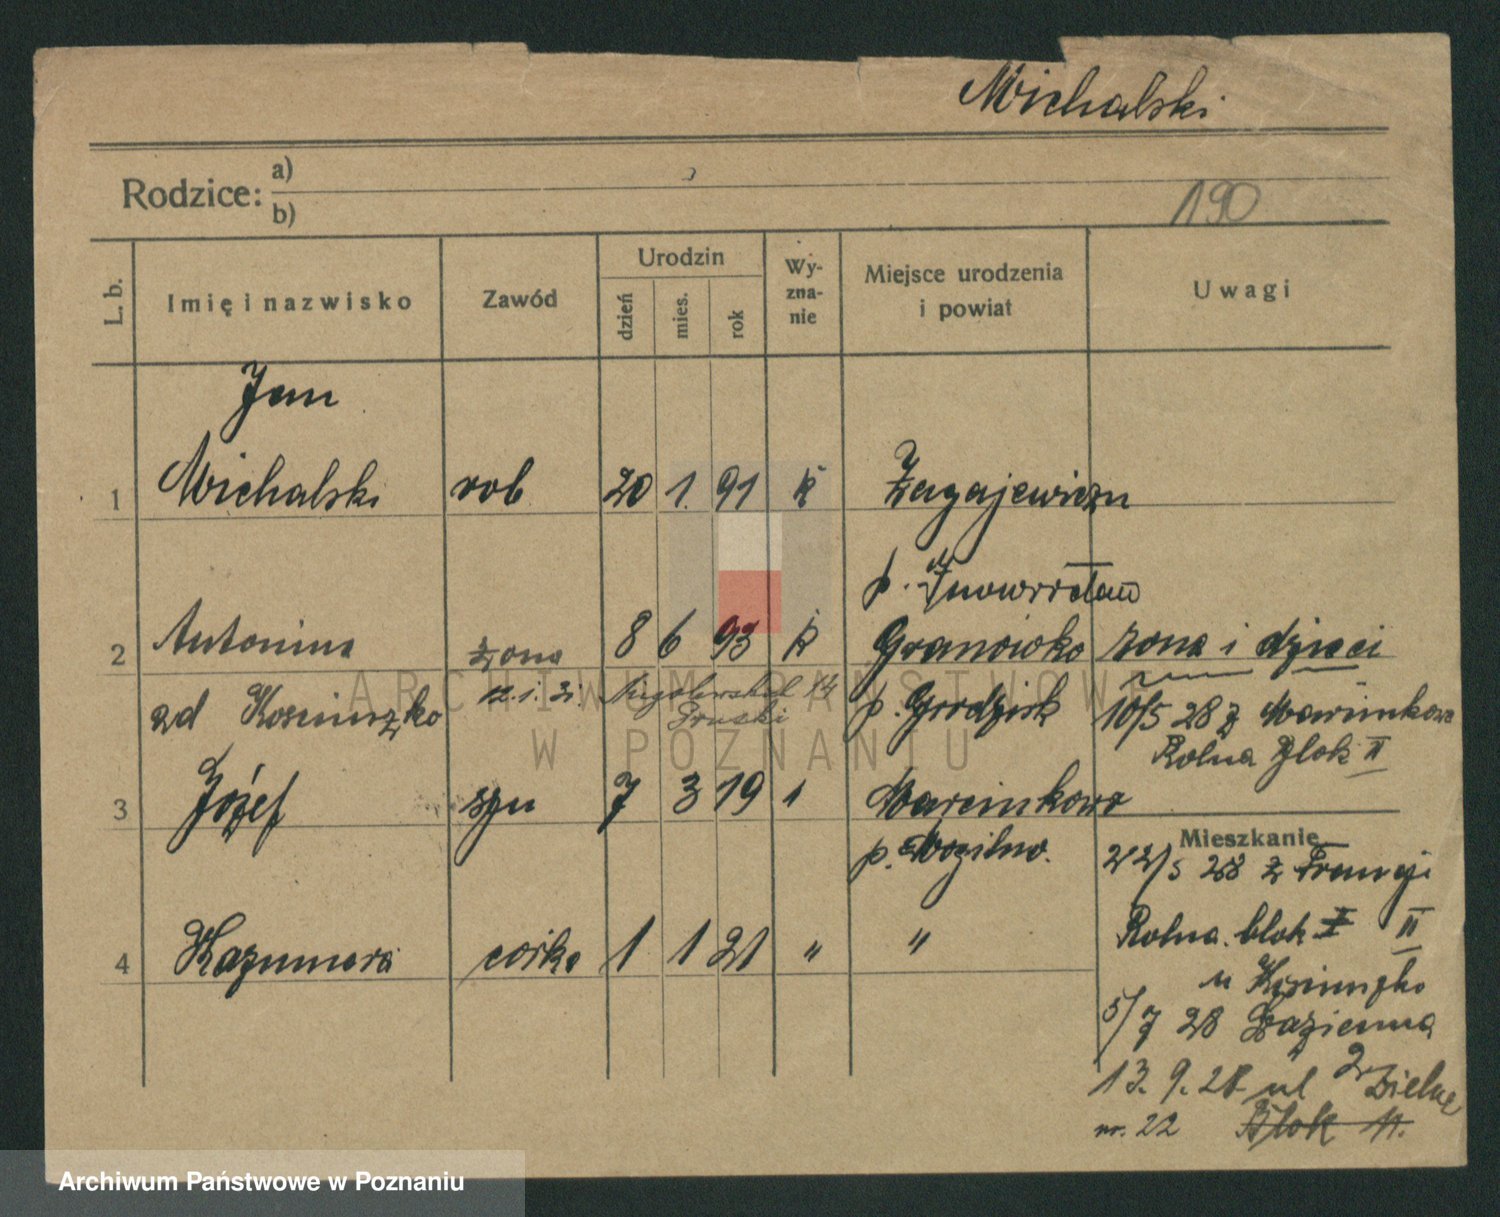 Michalski
Rodzice: a)
b)
190
L. b.
Imię i nazwisko
Zawód
Urodzin
dzień
mies.
rok
Wy-
zna-
nie
Miejsce urodzenia
i powiat
Uwagi
Jan
1 Michalski rob 20 1. 91 k
p. Inowrocław
2 Antonina żona 8 6 93 k Granowko żona i dzieci
zd Kosciuszko 12.1.31. p. Grodzisk 10/5 28 z Marcinkowa
Rolna Blok II
3 Józef syn 7 3 19 Marcinkowo
p. Mogilno.
Mieszkanie
22/5 28 z Francji
4 Kazimiera córka 1 1 21 " "
Rolna. blok I II
u Kosciuszko
5/7 28 Łazienna 2
13. 9. 28 ul Dzielna
nr. 22 Blok 11.
ARCHIWUM PAŃSTWOWE
W POZNANIU
Archiwum Państwowe w Poznaniu